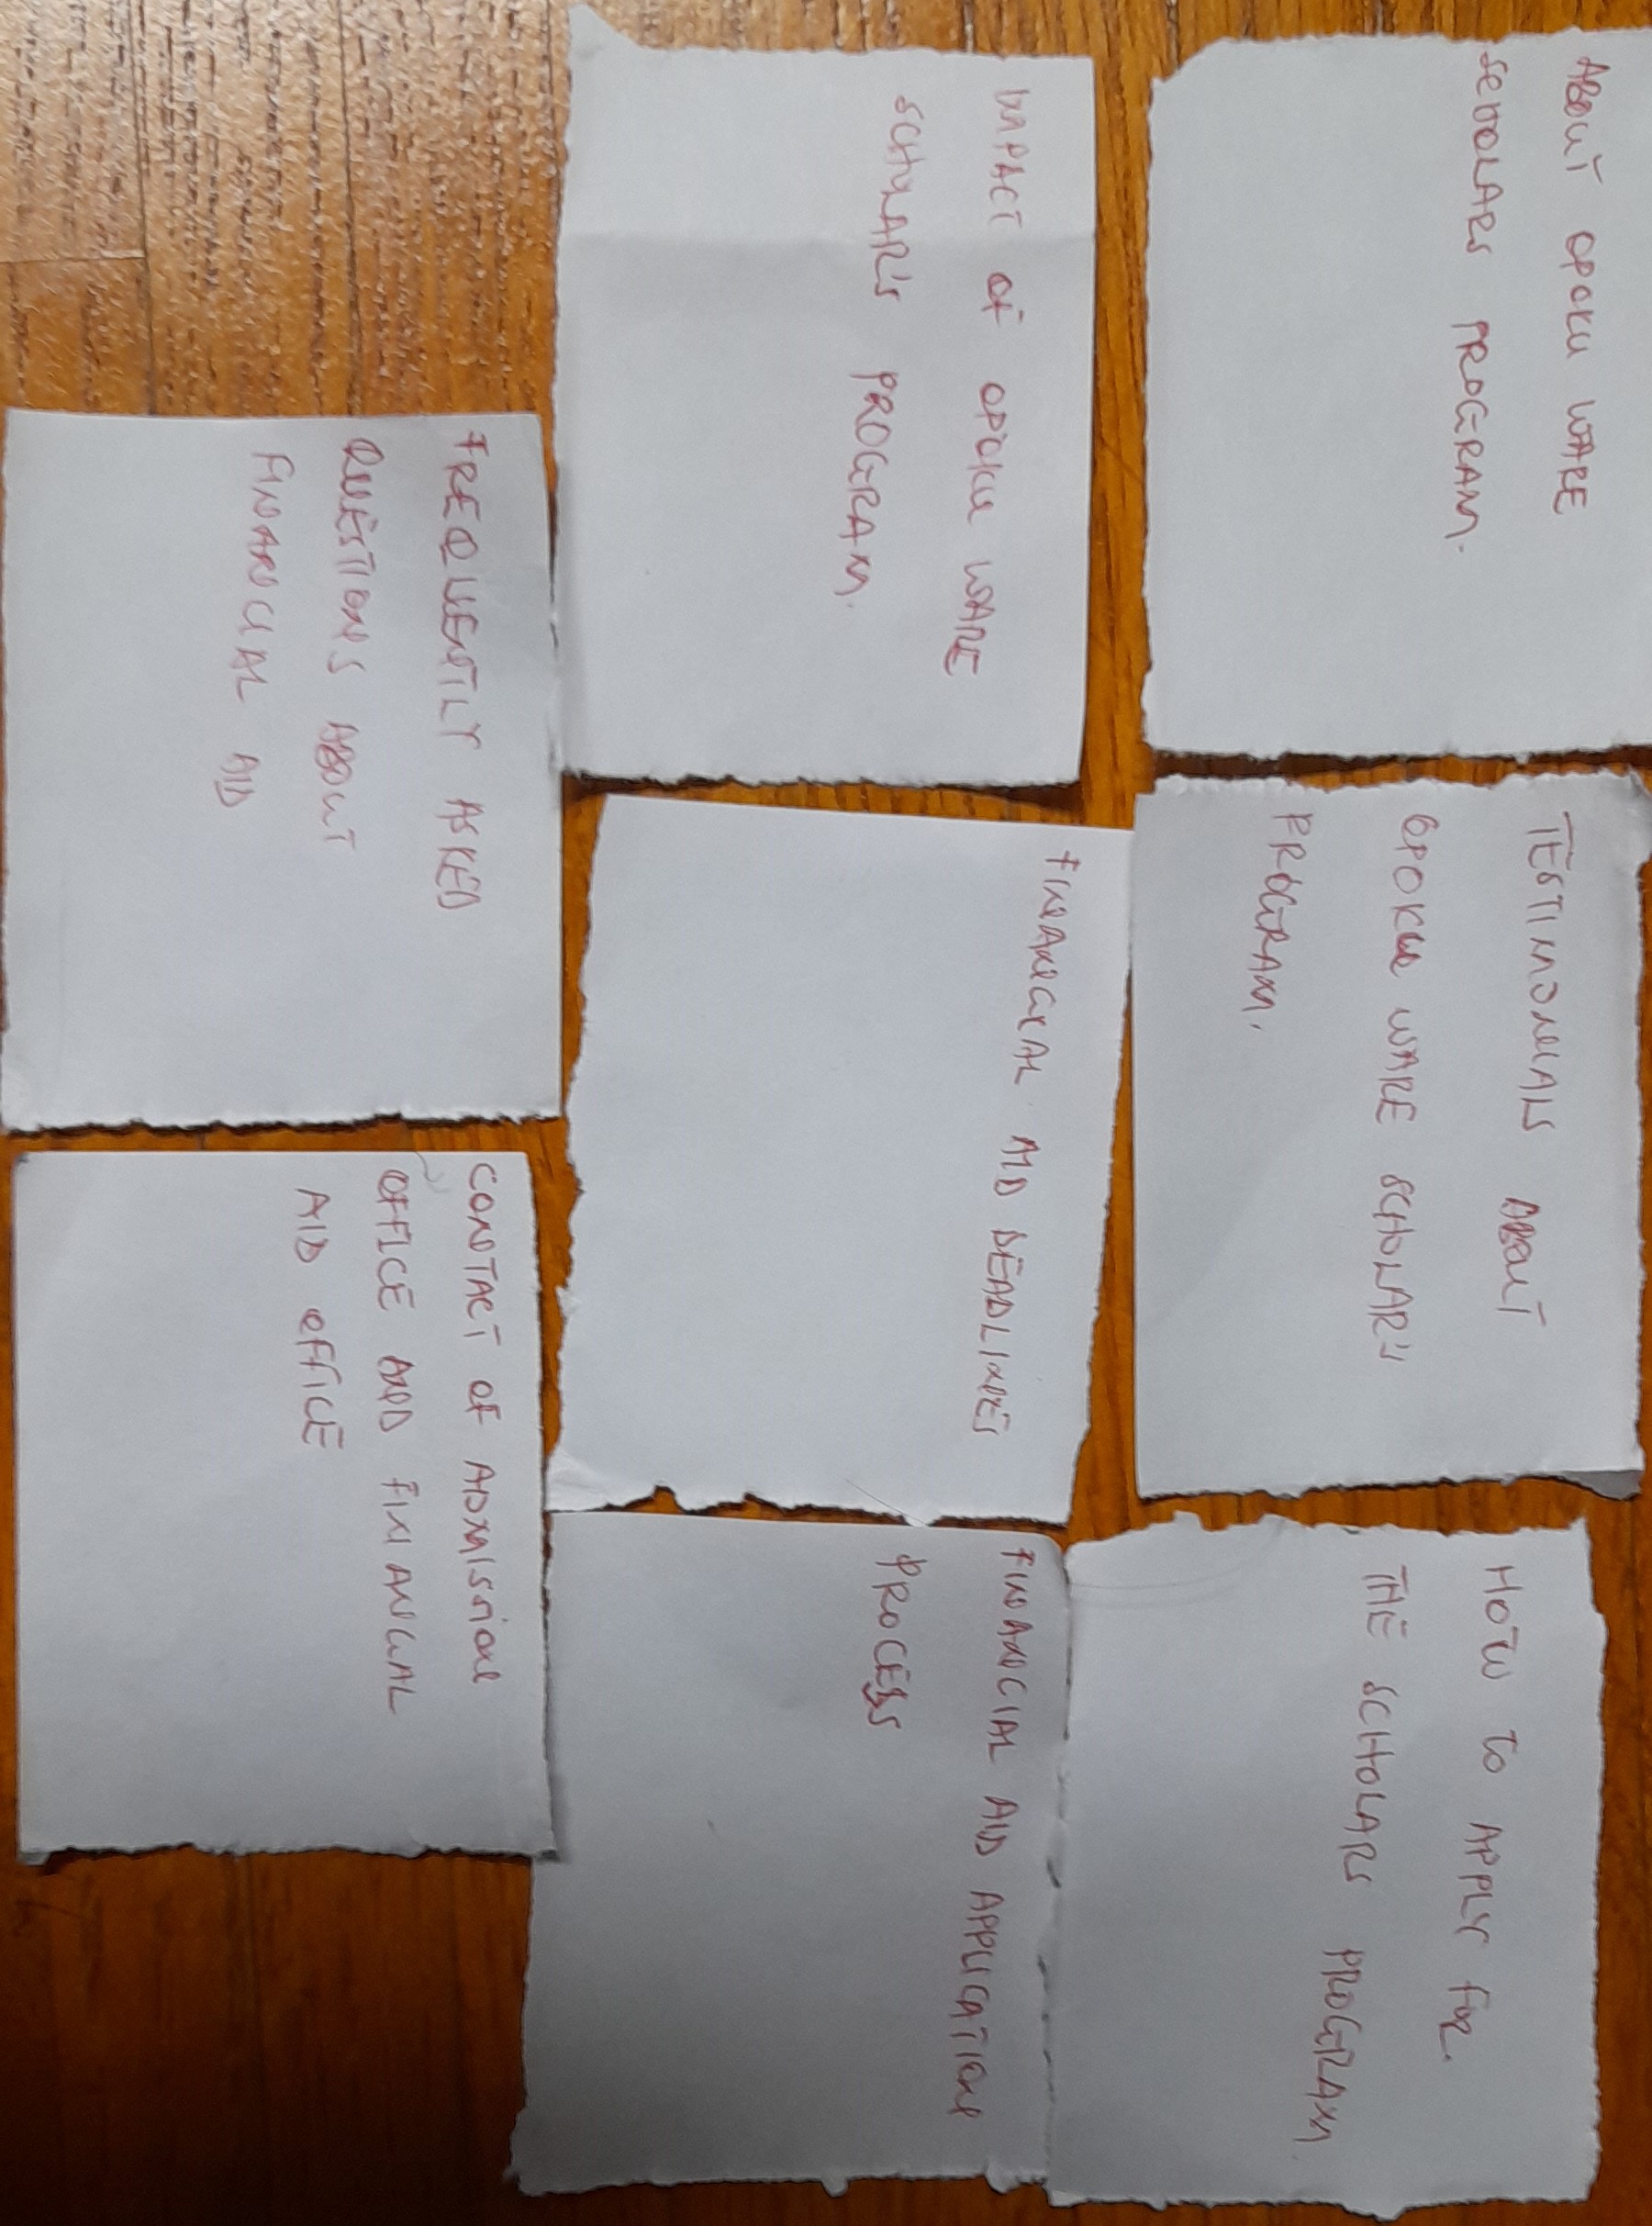 ABOUT OPOKU WARE
SCHOLARS PROGRAM.
TESTIMONIALS ABOUT
OPOKU WARE SCHOLAR'S
PROGRAM.
HOW TO APPLY FOR.
THE SCHOLARS PROGRAM.
IMPACT OF OPOKU WARE
SCHOLAR'S PROGRAM.
FINANCIAL AID DEADLINES
FINANCIAL AID APPLICATION
PROCESS
FREQUENTLY ASKED
QUESTIONS ABOUT
FINANCIAL AID
CONTACT OF ADMISSION
OFFICE AND FINANCIAL
AID OFFICE